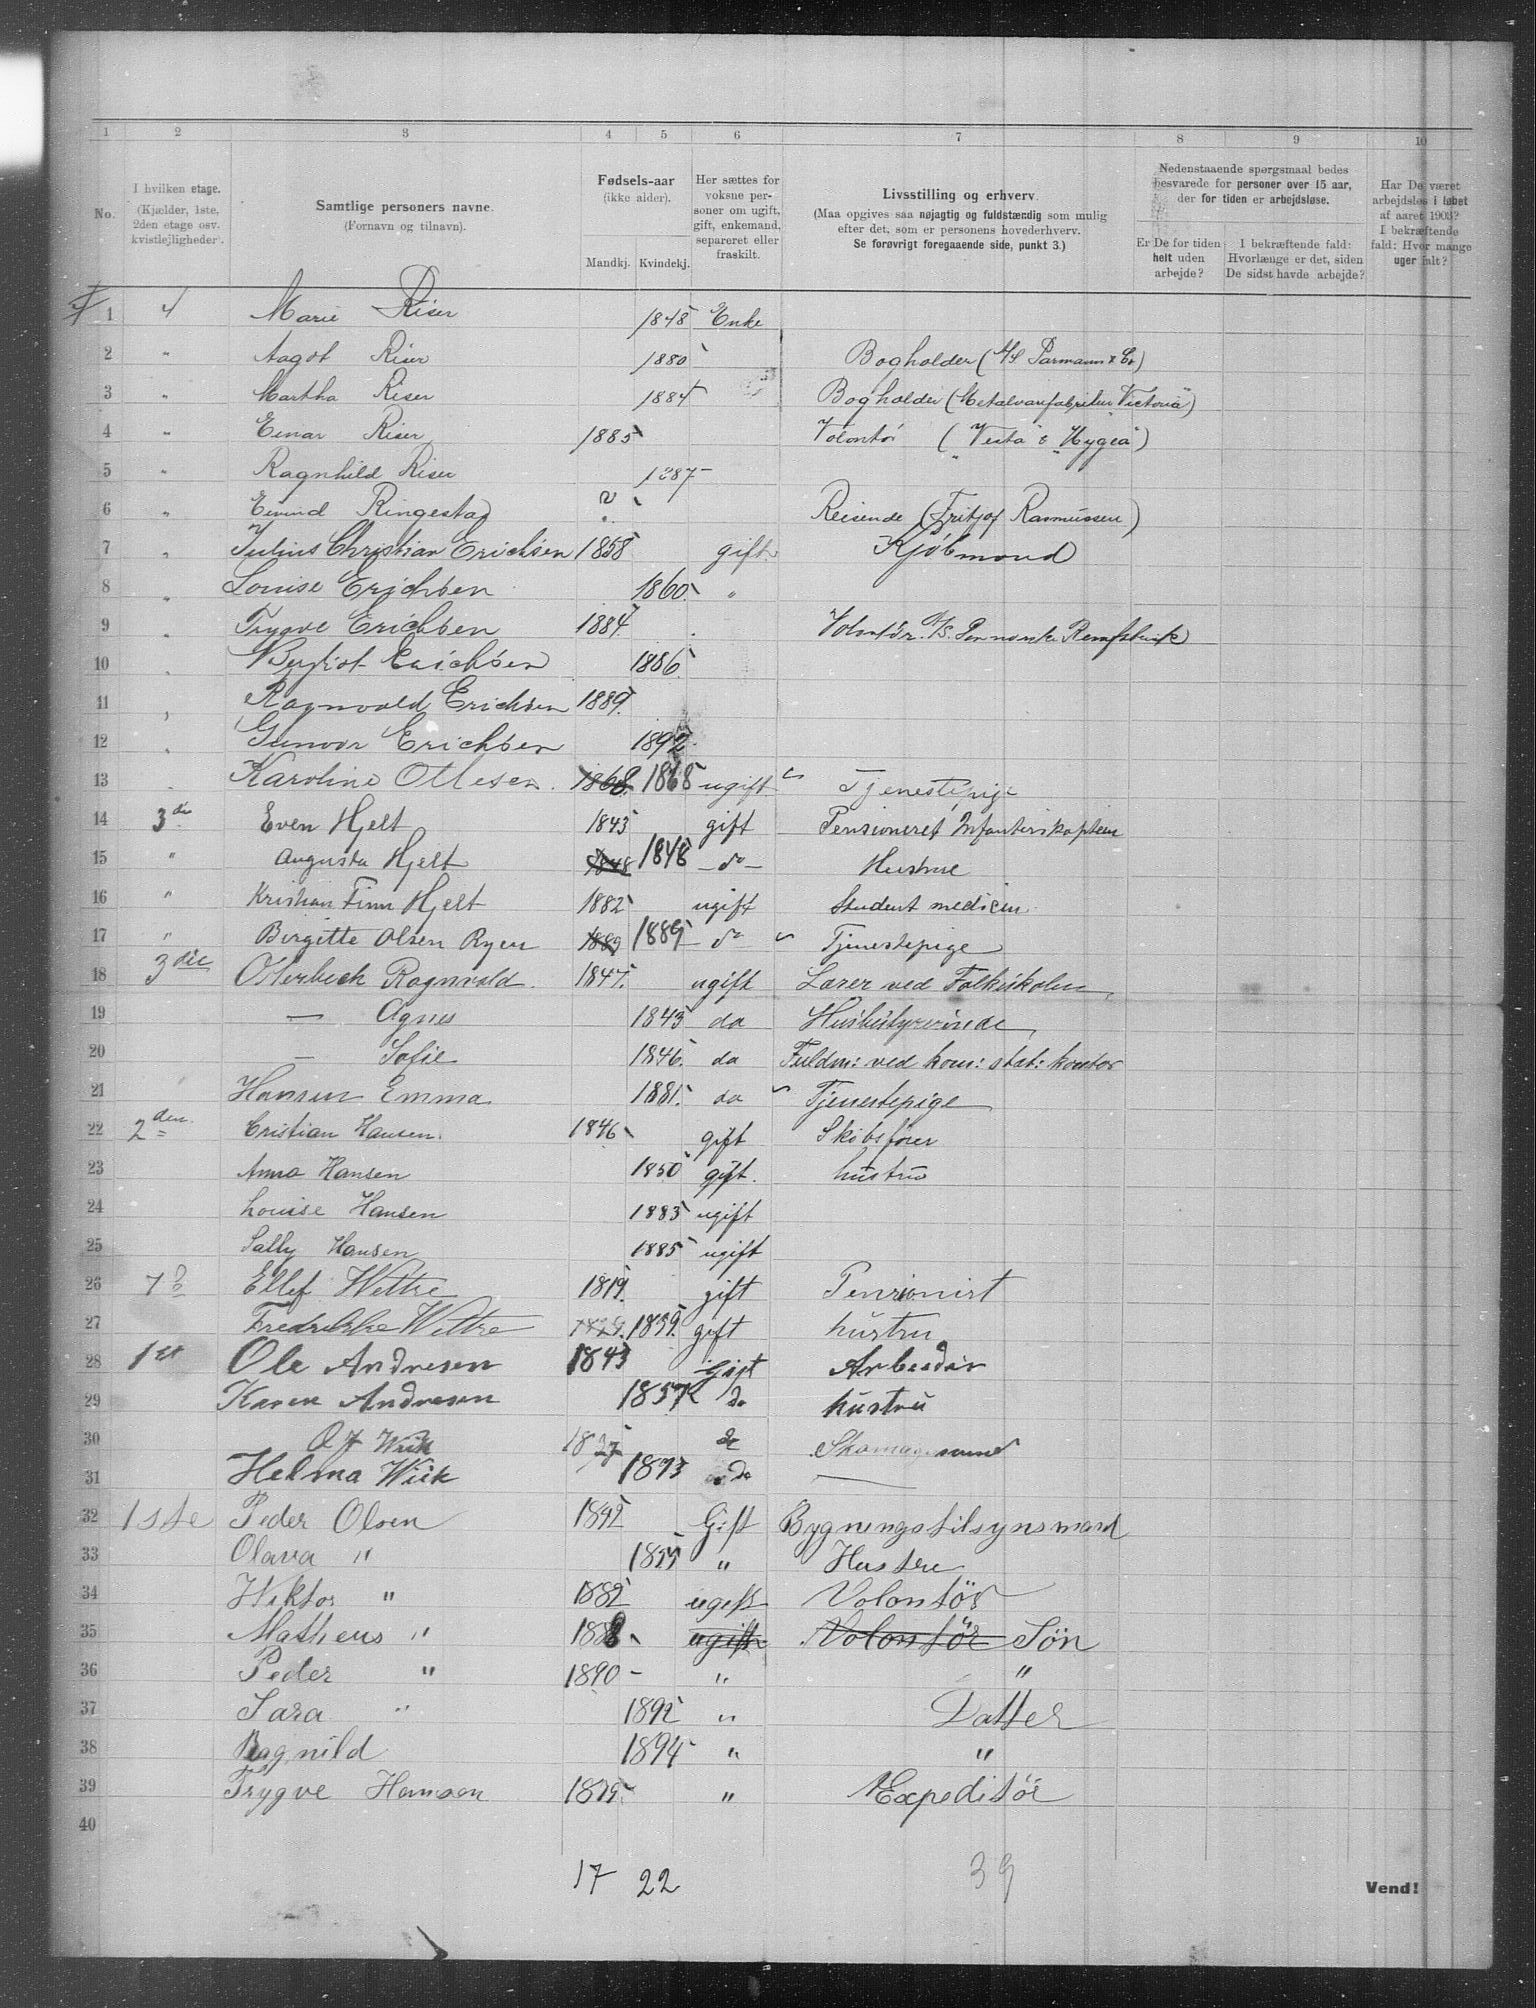 1 2 3 4 5 6 7 8 9 10
No.
I hvilken etage.
(Kjælder, 1ste, 2den etage osv. kvistlejligheder).
Samtlige personers navne.
(Fornavn og tilnavn).
Fødsels-aar
(ikke alder).
Mandkj. Kvindekj.
Her sættes for voksne personer om ugift, gift, enkemand, separeret eller fraskilt.
Livsstilling og erhverv.
(Maa opgives saa nøjagtig og fuldstændig som mulig efter det, som er personens hovederhverv.
Se forøvrigt foregaaende side, punkt 3.)
Nedenstaaende spørgsmaal bedes besvarede for personer over 15 aar, der for tiden er arbejdsløse.
Er De for tiden helt uden arbejde?
I bekræftende fald: Hvorlænge er det, siden De sidst havde arbejde?
Har De været arbejdsløs i løbet af aaret 1903? I bekræftende fald: Hvor mange uger ialt?
1 4 Marie Riser 1848 Enke
2 " Aagot Riser 1880 Bogholder (A/S Parmann & Co)
3 " Martha Riser 1884 Bogholder (Metalvarefabriken "Victoria")
4 " Einar Riser 1885 Volontør ("Vesta" & "Hygea")
5 " Ragnhild Riser 1887
6 " Eivind Ringestad Reisende (Fritjof Rasmussen)
7 " Julius Christian Erichsen 1858 gift Kjøbmand
8 " Louise Erichsen 1860 "
9 " Trygve Erichsen 1884 Volontør A/S
10 " Bergliot Erichsen 1886
11 " Ragnvald Erichsen 1889
12 " Gunvor Erichsen 1892
13 " Karoline Ottesen 1868 1868 ugift Tjenestepige
14 3die Even Hjelt 1843 gift Pensioneret Infanterikaptein
15 " Augusta Hjelt 1848 1848 - do - Hustrue
16 " Kristian Finn Hjelt 1882 ugift Student medicin
17 " Birgitte Olsen Ryen 1889 1889 - do Tjenestepige
18 3die Osterbech Ragnvald 1847 ugift Lærer ved Folkeskolen
19 — Agnes 1843 do Husbestyrerinde
20 — Sofie 1846 do Fuldm: ved kom: stat: kontor
21 Hansen Emma 1881 do Tjenestepige
22 2den Cristian Hansen 1846 gift Skibsfører
23 Anna Hansen 1850 gift hustru
24 Louise Hansen 1883 ugift
25 Sally Hansen 1885 ugift
26 Ellef Wettre 1819 gift Pensionist
27 Fredrikke Wettre 1829 1859 gift hustru
28 1st Ole Andresen 1843 Gift Arbeider
29 Karen Andresen 1857 do hustru
30 Wiik 1837 do Skomagersvend
31 Helma Wiik 1873 do —
32 1ste Peder Olsen 1842 Gift Bygningstilsynsmand
33 Olava " 1855 " Hustru
34 Wiktor " 1882 ugift Volontör
35 Matheus " 1888 ugift Volontör Sön
36 Peder " 1890 " "
37 Sara " 1892 " Datter
38 Ragnild 1894 " "
39 Trygve Hansen 1879 " Expeditör
40
17 22 39
Vend!